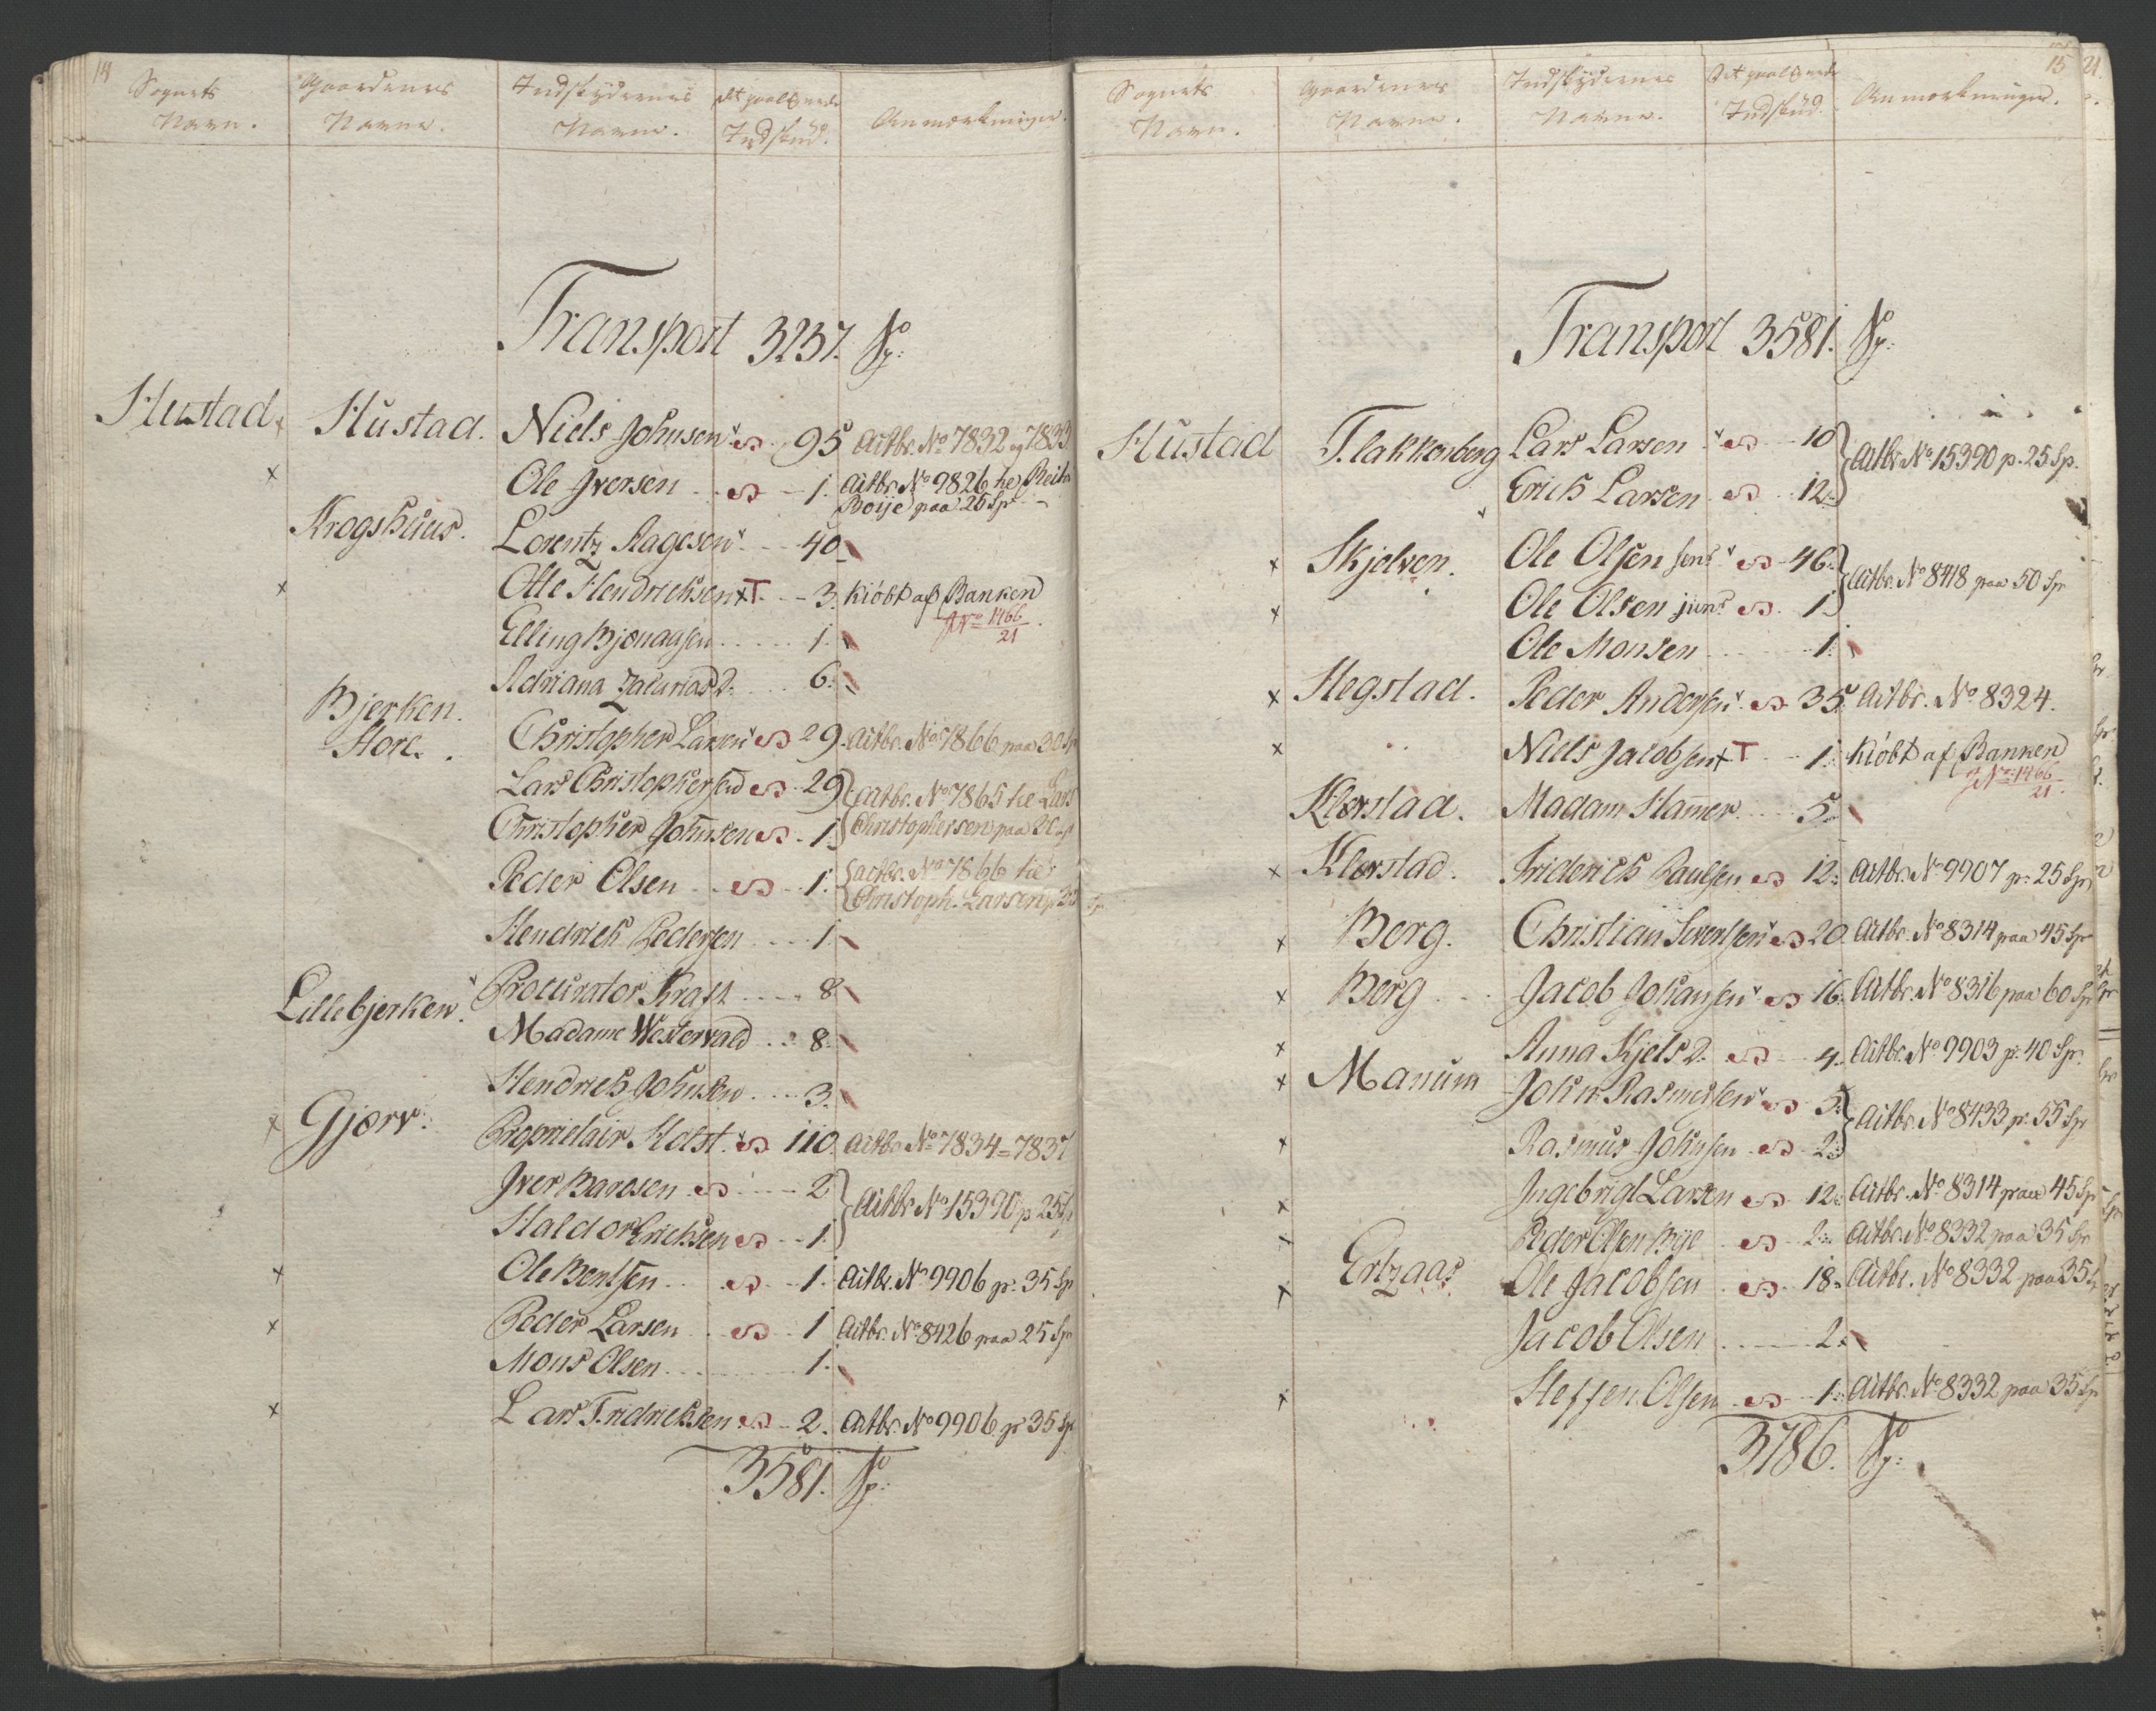 14
Sognets Navn. Gaardenes Navne. Indskydernes Navne. det paalignede Indskud. Anmærkninger.
Transport 3237. Sp:
Hustad Hustad. Niels Johnsen 95 Actbr. No 7832 og 7833
Ole Iversen 1. Actbr. No 9826 he
Boije paa 25 Sp
Krogshuus. Lorentz Aagesen 40
Otte Hendrichsen T 3. kiöbt af Banken
No 1466/21
Elling Bjonaasen 1.
Adriana Zacarias D. 6.
Bjerken Store. Christopher Larsen 29. Actbr. No 7866 paa 30 Sp
Lars Christophersen 29 Actbr. No 7865 he Lars
Christopher Johnsen 1. Christophersen paa
Peder Olsen 1. actbr. No 7866 he
Christoph. Larsen
Hendrich Pedersen 1.
Lillebjerken. Procurator Kraft 8
Madame Westervald 8.
Hendrich Johnsen 3.
Gjørv. Proprietair Holst. 110. Actbr. No 7834=7837
Iver Barosen 2 Actbr. No 15390 p 25 Sp
Haldor Erichsen 1.
Ole Bentsen 1. Actbr. No 9906 p: 35 Sp
Peder Larsen 1 Actbr. No 8426 paa 25 Sp
Mons Olsen 1.
Lars Fridrichsen 2. Actbr. No 9906 p 35 Sp
3581. Sp:
15 21
Sognets Navn. Gaardenes Navne. Indskydernes Navne. Det paalignede Indskud. Anmærkninger.
Transport 3581. Sp:
Hustad Flakkenberg Lars Larsen 10 Actbr. No 15390 p. 25 Sp.
Erich Larsen 12
Skjelven. Ole Olsen sen: 46. Actbr. No 8418 paa 50 Sp
Ole Olsen jun: 1.
Ole Monsen 1.
Hegstad. Peder Andersen 35. Actbr. No 8324.
Niels Jacobsen T 1. kiöbt af Banken
No 1466/21
Klørstad. Madam Hamer 5
Klørstad. Friderich Paulsen 12. Actbr. No 9907 p: 25 Sp
Berg. Christian Svensen 20. Actbr. No 8314 paa 45 Sp
Berg Jacob Johansen 16. Actbr. No 8316 paa 60 Sp
Anna Kjels D. 4. Actbr. No 9903 p: 40 Sp.
Manum John Rasmussen 5. Actbr. No 8433 p: 55 Sp
Rasmus Johnsen 2
Ingebrigt Larsen 12. Actbr. No 8314 paa 45 Sp
Peder Olsen Bye 2. Actbr. No 8332 paa 35 Sp
Ertzaas Ole Jacobsen 18. Actbr. No 8332 paa 35 Sp
Jacob Olsen 2.
Steffen Olsen 1. Actbr. No 8332 paa 35 Sp
3786. Sp: